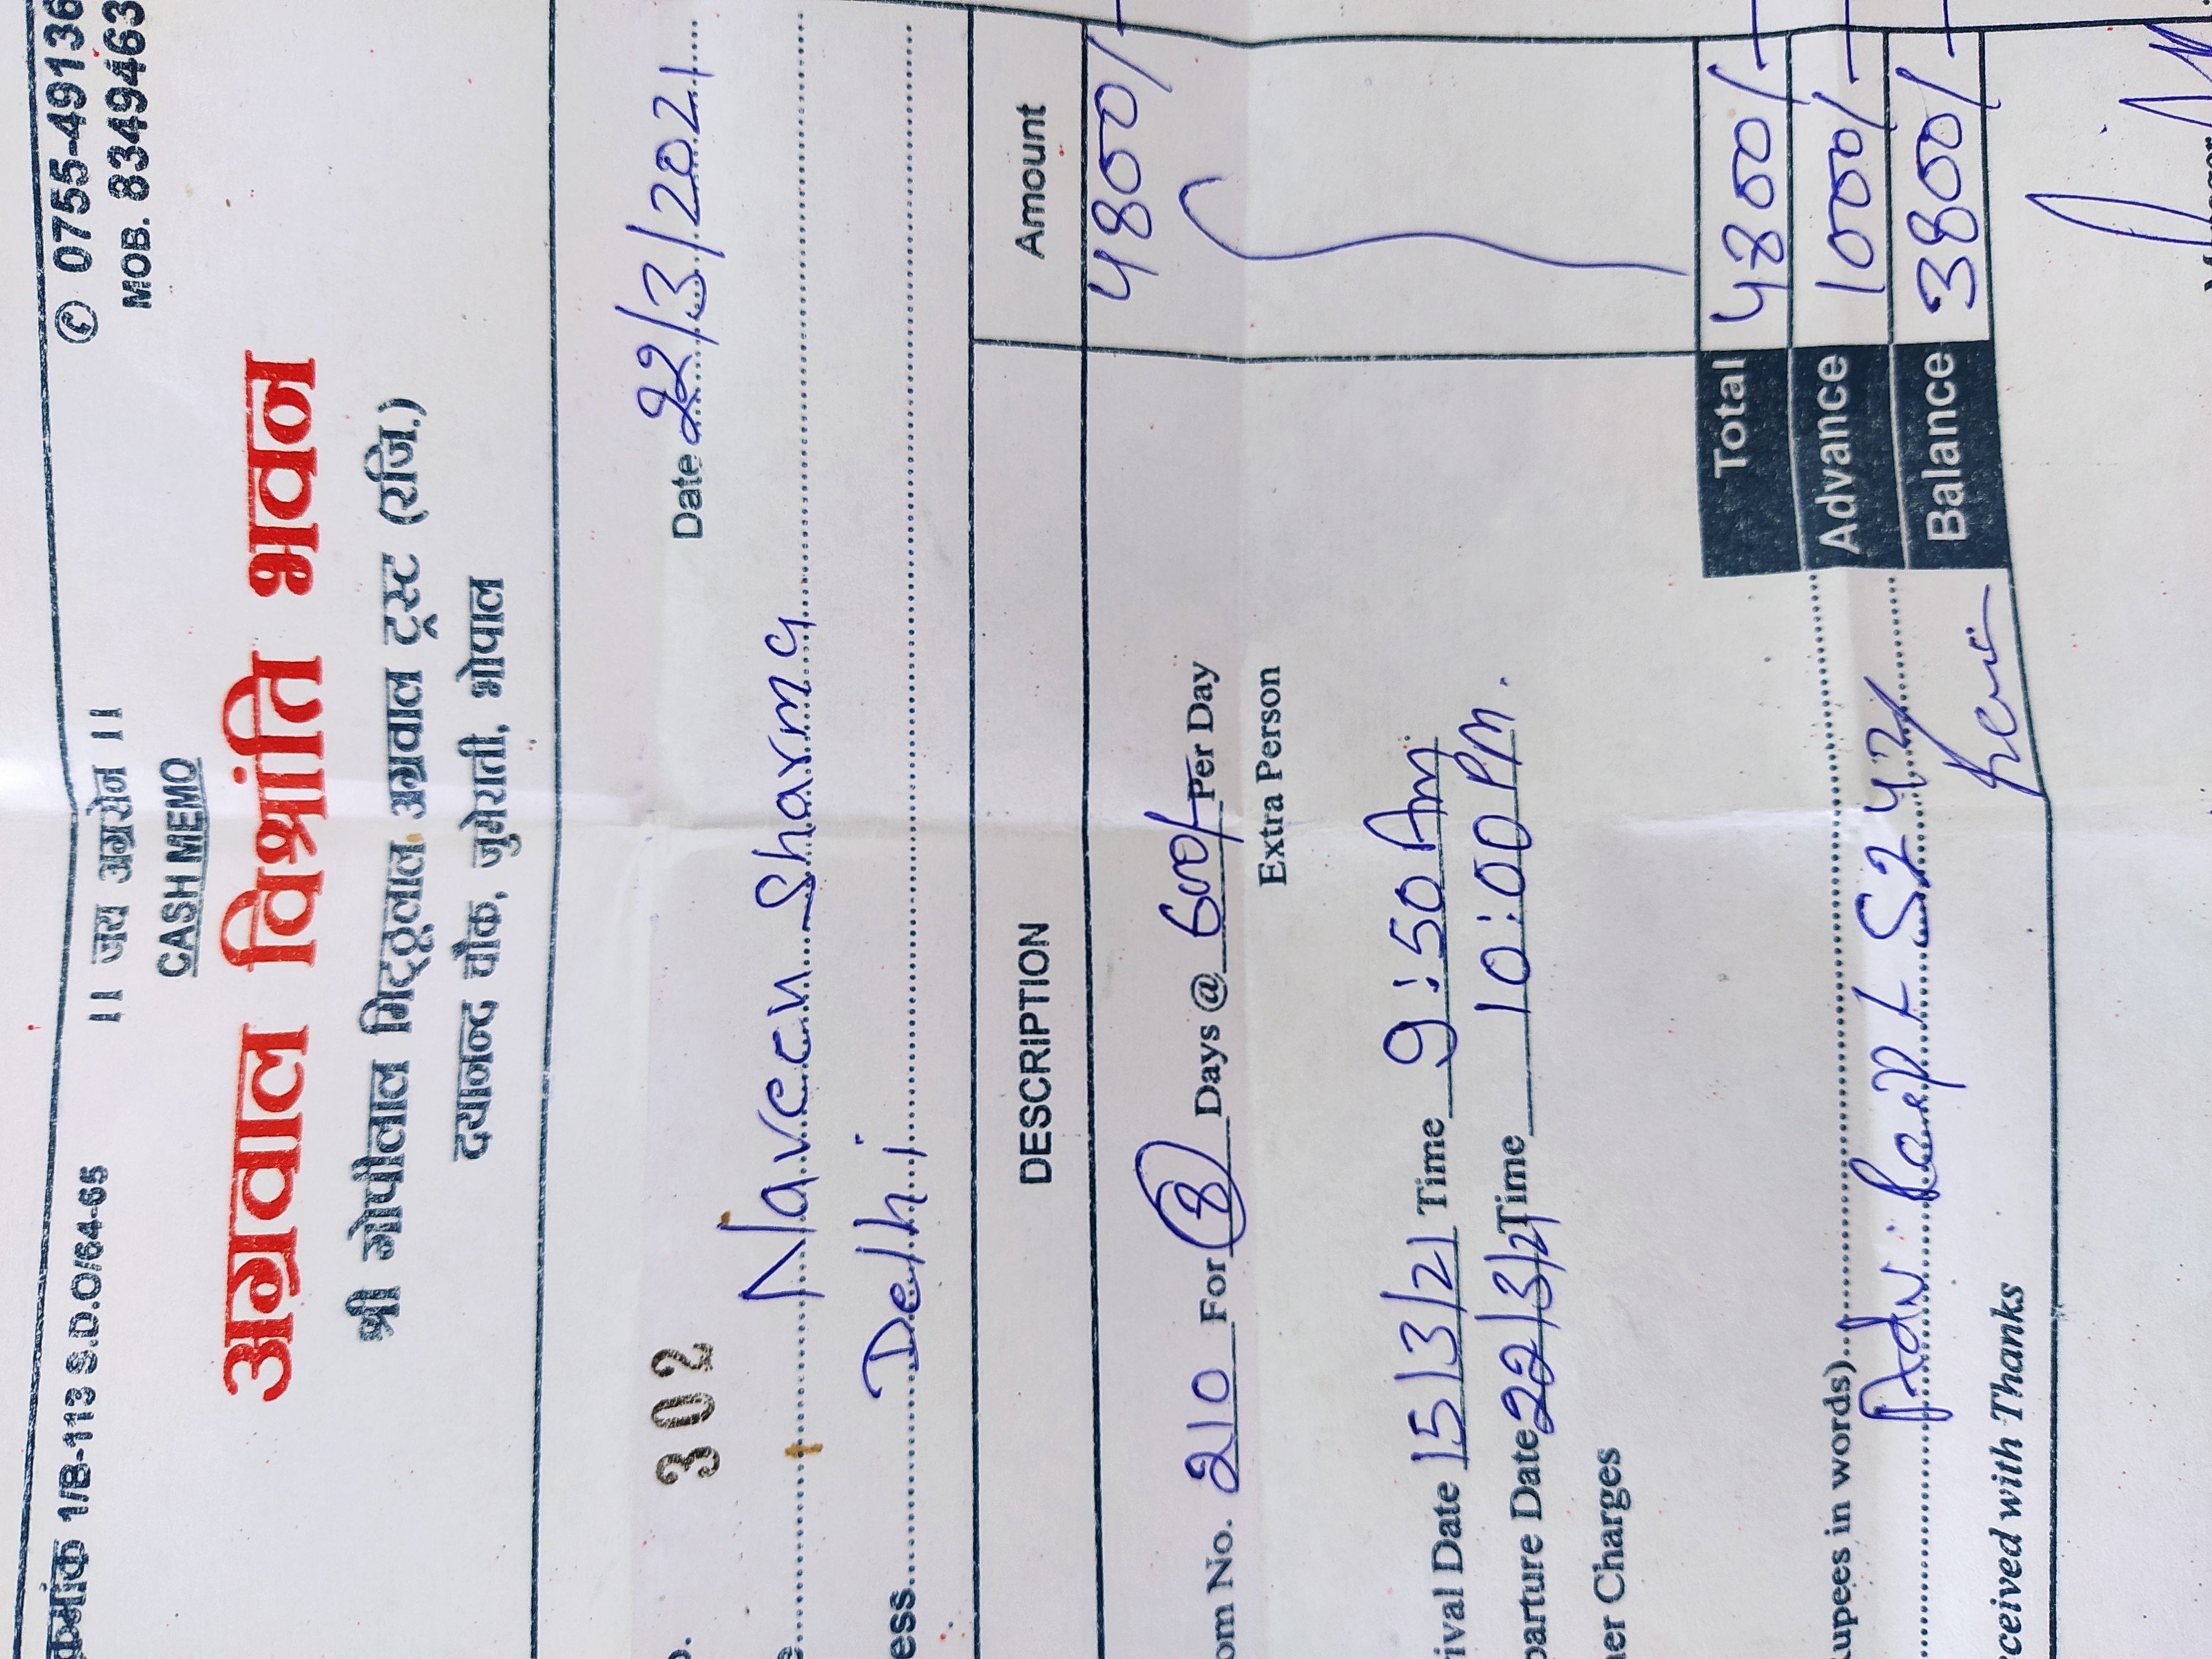 क्रमांक 1/B-113 S.D.O/64-65
।। जय अग्रसेन ।।
© 0755-49136
CASH MEMO
MOB. 8349463
अग्रवाल विश्रांति भवन
श्री गोपीलाल मिट्ठूलाल अग्रवाल ट्रस्ट (रजि.)
दयानन्द चौक, जुमेराती, भोपाल
302 Date 22/3/2021
Naveen Sharma
ess Delhi
DESCRIPTION Amount
om No. 210 For 8 Days @ 600/- Per Day 4800/-
Extra Person
ival Date 15/3/21 Time 9:50 Am
parture Date 22/3/21 Time 10:00 Pm.
er Charges
Total 4800/-
upees in words) Advance 1000/-
Adv. 5242 Balance 3800/-
ceived with Thanks